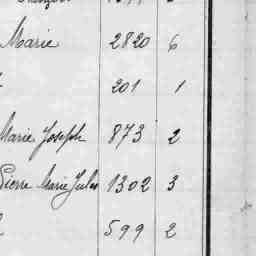 Marie 2820 6
201 1
Marie Joseph 873 2
Pierre Marie Jules 1302 3
599 2